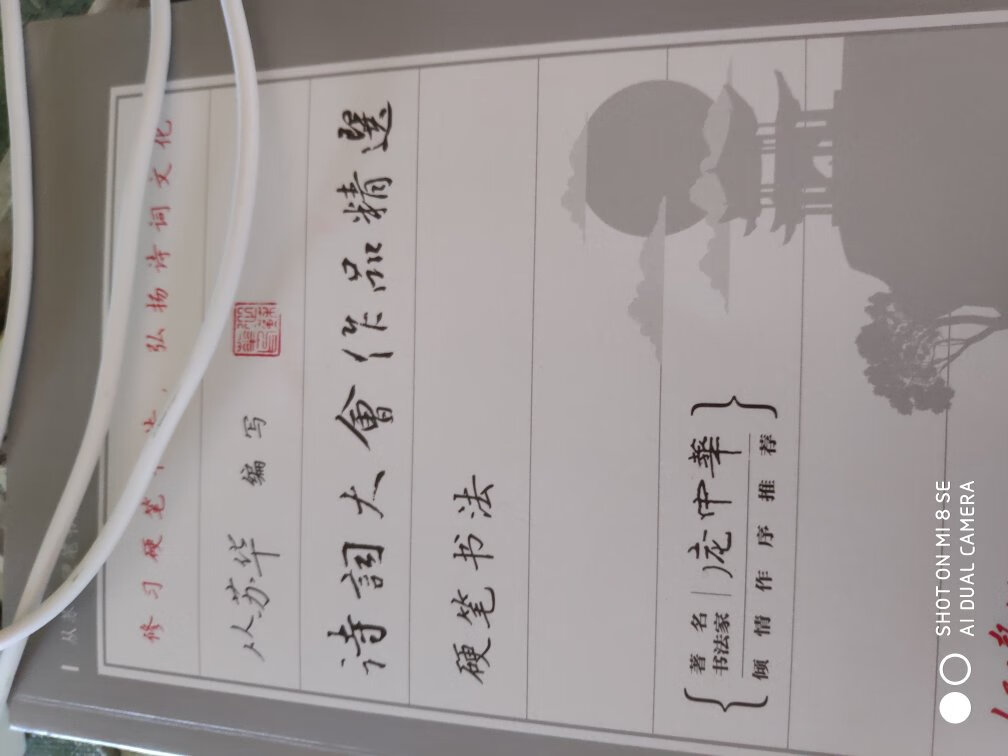 修习硬笔书法，弘扬诗词文化
从苏华 编写
诗詞大會作品精選
硬笔书法
著名书法家
庞中華
倾情作序推荐
SHOT ON MI 8 SE
AI DUAL CAMERA